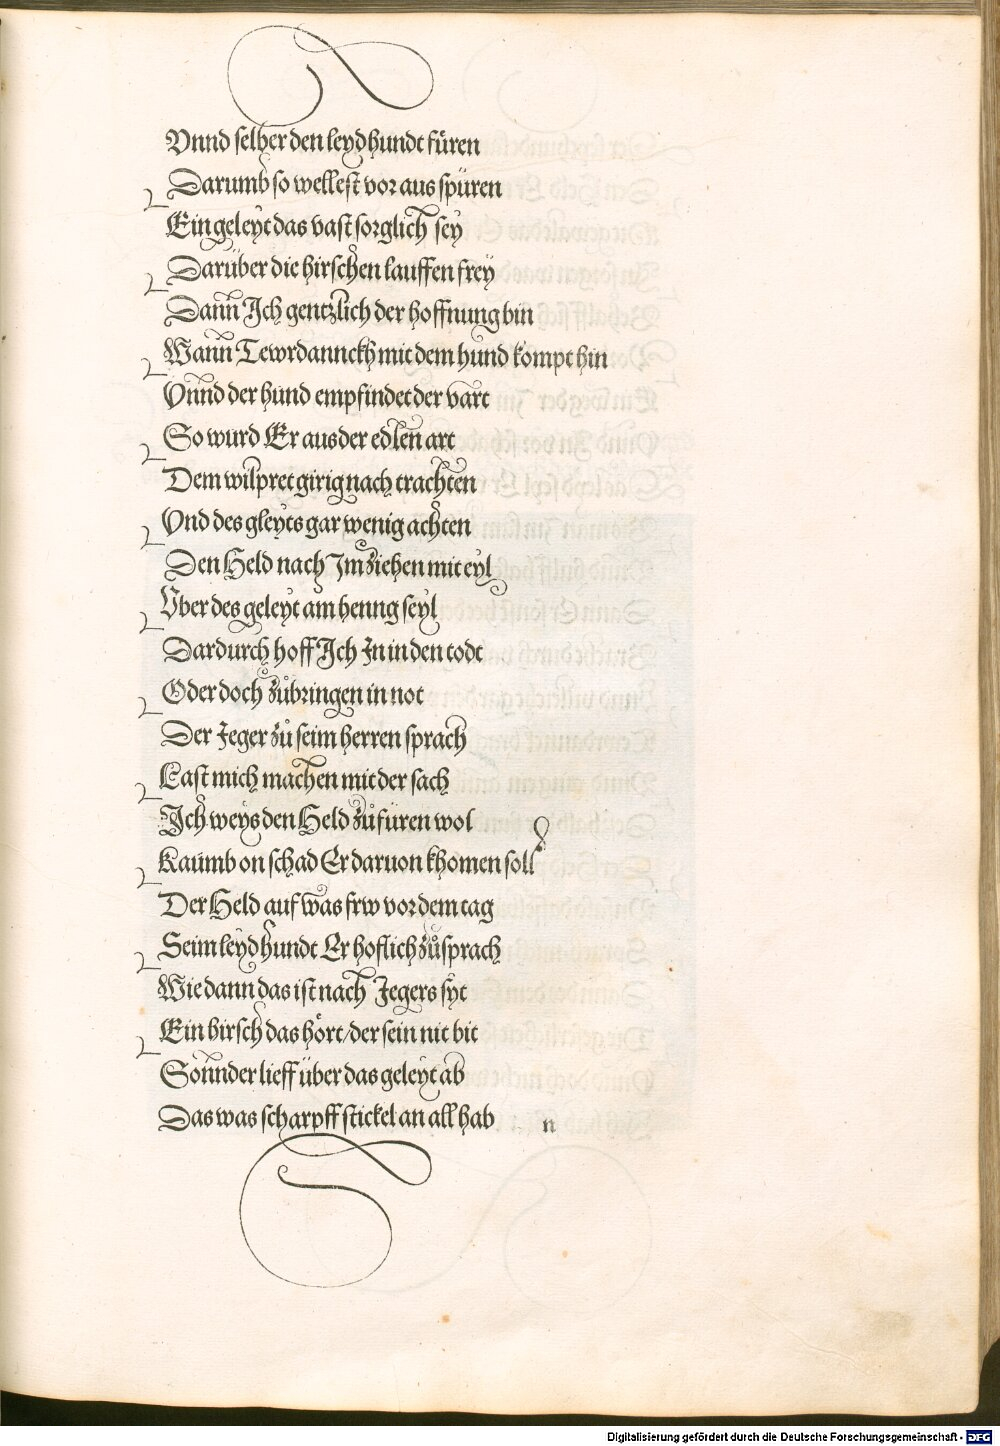 Vnnd selber den leydhundt füren
Darumb so wellest vor aus spüren
Ein geleyt das vast sorglich sey
Darüber die hirschen lauffen frey
Dann Ich gentzlich der hoffnung bin
Wann Tewrdannckh mit dem hund kompt hin
Vnnd der hund empfindet der vart
So wurd Er aus der edlen art
Dem wilpret girig nach trachten
Vnd des gleyts gar wenig achten
Den Held nach Im ziehen mit eyl
Vber des geleyt am henng seyl
Dardurch hoff Ich In in den todt
Oder doch zůbringen in not
Der Jeger zů seim herren sprach
Last mich machen mit der sach
Ich weys den Held zůfüren wol
Kaumb on schad Er daruon khomen soll
Der Held auf was frw vor dem tag
Seim leydhundt Er hoflich zůsprach
Wie dann das ist nach Jegers syt
Ein hirsch das hört/der sein nit bit
Sonnder lieff über das geleyt ab
Das was scharpff stickel an all hab
n
Digitalisierung gefördert durch die Deutsche Forschungsgemeinschaft - DFG